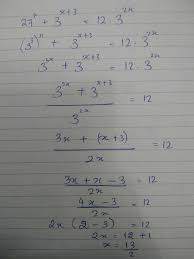 27^x + 3^{x+3} = 12 3^{2x}
(3^3)^x + 3^{x+3} = 12 · 3^{2x}
3^{3x} + 3^{x+3} = 12 · 3^{2x}
3^{3x} + 3^{x+3} / 3^{2x} = 12
3x + (x+3) / 2x = 12
3x + x - 3 / 2x = 12
4x - 3 / 2x = 12
2x (2 - 3) = 12
2x = 12 + 1
x = 13 / 2